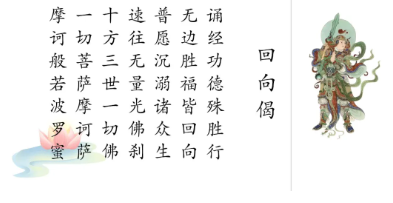 回向偈
诵经功德殊胜行
无边胜福皆回向
普愿沉溺诸众生
速往无量光佛刹
十方三世一切佛
一切菩萨摩诃萨
摩诃般若波罗蜜